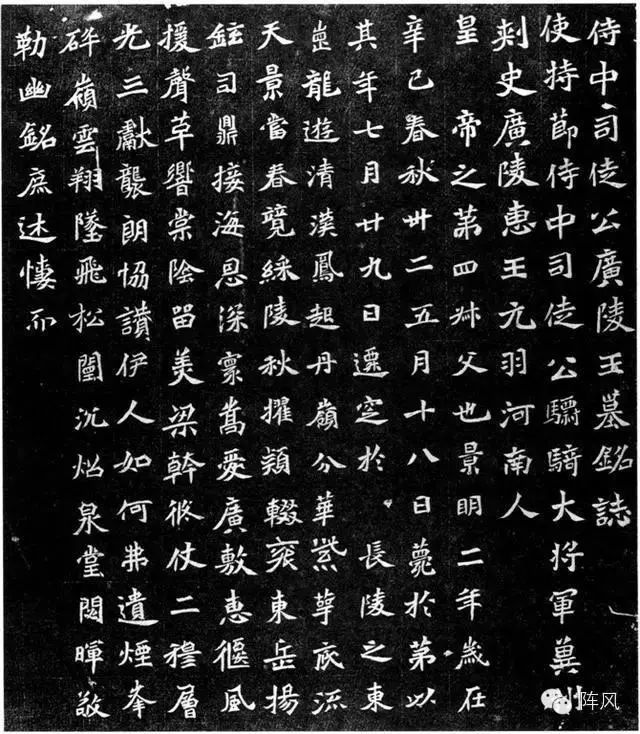 侍中司徒公廣陵王墓銘誌
使持節侍中司徒公驃騎大將軍冀州
刺史廣陵惠王元羽河南人
皇帝之第四叔父也景明二年歲在
辛巳春秋卅二五月十八日薨於第以
其年七月廿九日遷窆於長陵之東
崗龍遊清漢鳳起丹嶺分華紫萼底流
天景當春競綵陵秋擢穎輟袞東岳揚
鉉司鼎接海恩深寰嵩愛廣敷惠偃風
援聲革響棠陰留美梁幹俢仗二穆層
光三獻襲朗協讚伊人如何弗遺煙峯
碎嶺雲翔墜飛松闈沉焰泉堂闕暉敬
勒幽銘庶述悽而
阵风